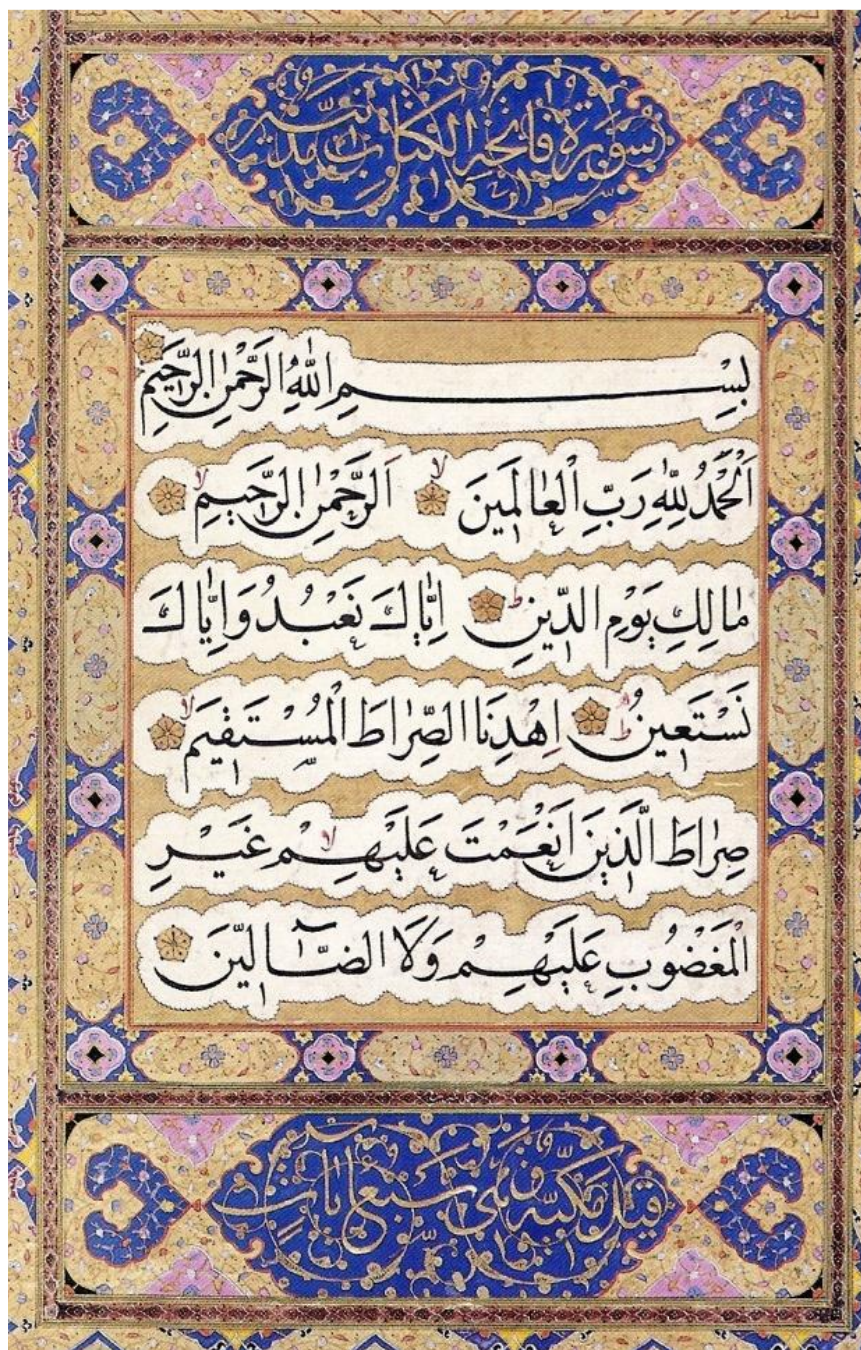 سُورَةُ فَاتِحَةِ الْكِتَابِ مَدَنِيَّة
بِسْمِ اللّٰهِ الرَّحْمٰنِ الرَّحِيمِ
اَلْحَمْدُ لِلّٰهِ رَبِّ الْعَالَمِينَ ۙ اَلرَّحْمٰنِ الرَّحِيمِ ۙ
مَالِكِ يَوْمِ الدِّينِ ۜ اِيَّاكَ نَعْبُدُ وَاِيَّاكَ
نَسْتَعِينُ ۜ اِهْدِنَا الصِّرَاطَ الْمُسْتَقِيمَ ۙ
صِرَاطَ الَّذِينَ اَنْعَمْتَ عَلَيْهِمْ ۙ غَيْرِ
الْمَغْضُوبِ عَلَيْهِمْ وَلَا الضَّٓالِّينَ
قيل مكية وهي سبع اٰيات